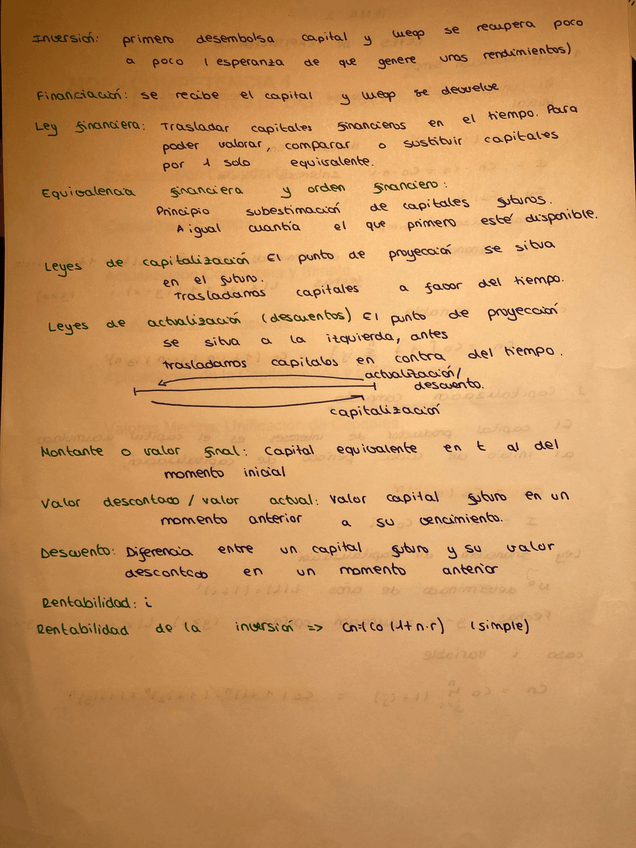 Inversión: primero desembolsa capital y luego se recupera poco
a poco (esperanza de que genere unos rendimientos)
Financiación: se recibe el capital y luego se devuelve
Ley financiera: Trasladar capitales financieros en el tiempo. Para
poder valorar, comparar o sustituir capitales
por 1 solo equivalente.
Equivalencia financiera y orden financiero:
Principio subestimación de capitales futuros.
A igual cuantía el que primero esté disponible.
Leyes de capitalización El punto de proyección se situa
en el futuro.
Trasladamos capitales a favor del tiempo.
Leyes de actualización (descuentos) El punto de proyección
se situa a la izquierda, antes
trasladamos capitalos en contra del tiempo.
actualización/
descuento.
capitalización
Montante o valor final: Capital equivalente en t al del
momento inicial
Valor descontado / valor actual: Valor capital futuro en un
momento anterior a su vencimiento.
Descuento: Diferencia entre un capital futuro y su valor
descontado en un momento anterior
Rentabilidad: i
Rentabilidad de la inversión => Cn=(Co (1+n·r) (simple)